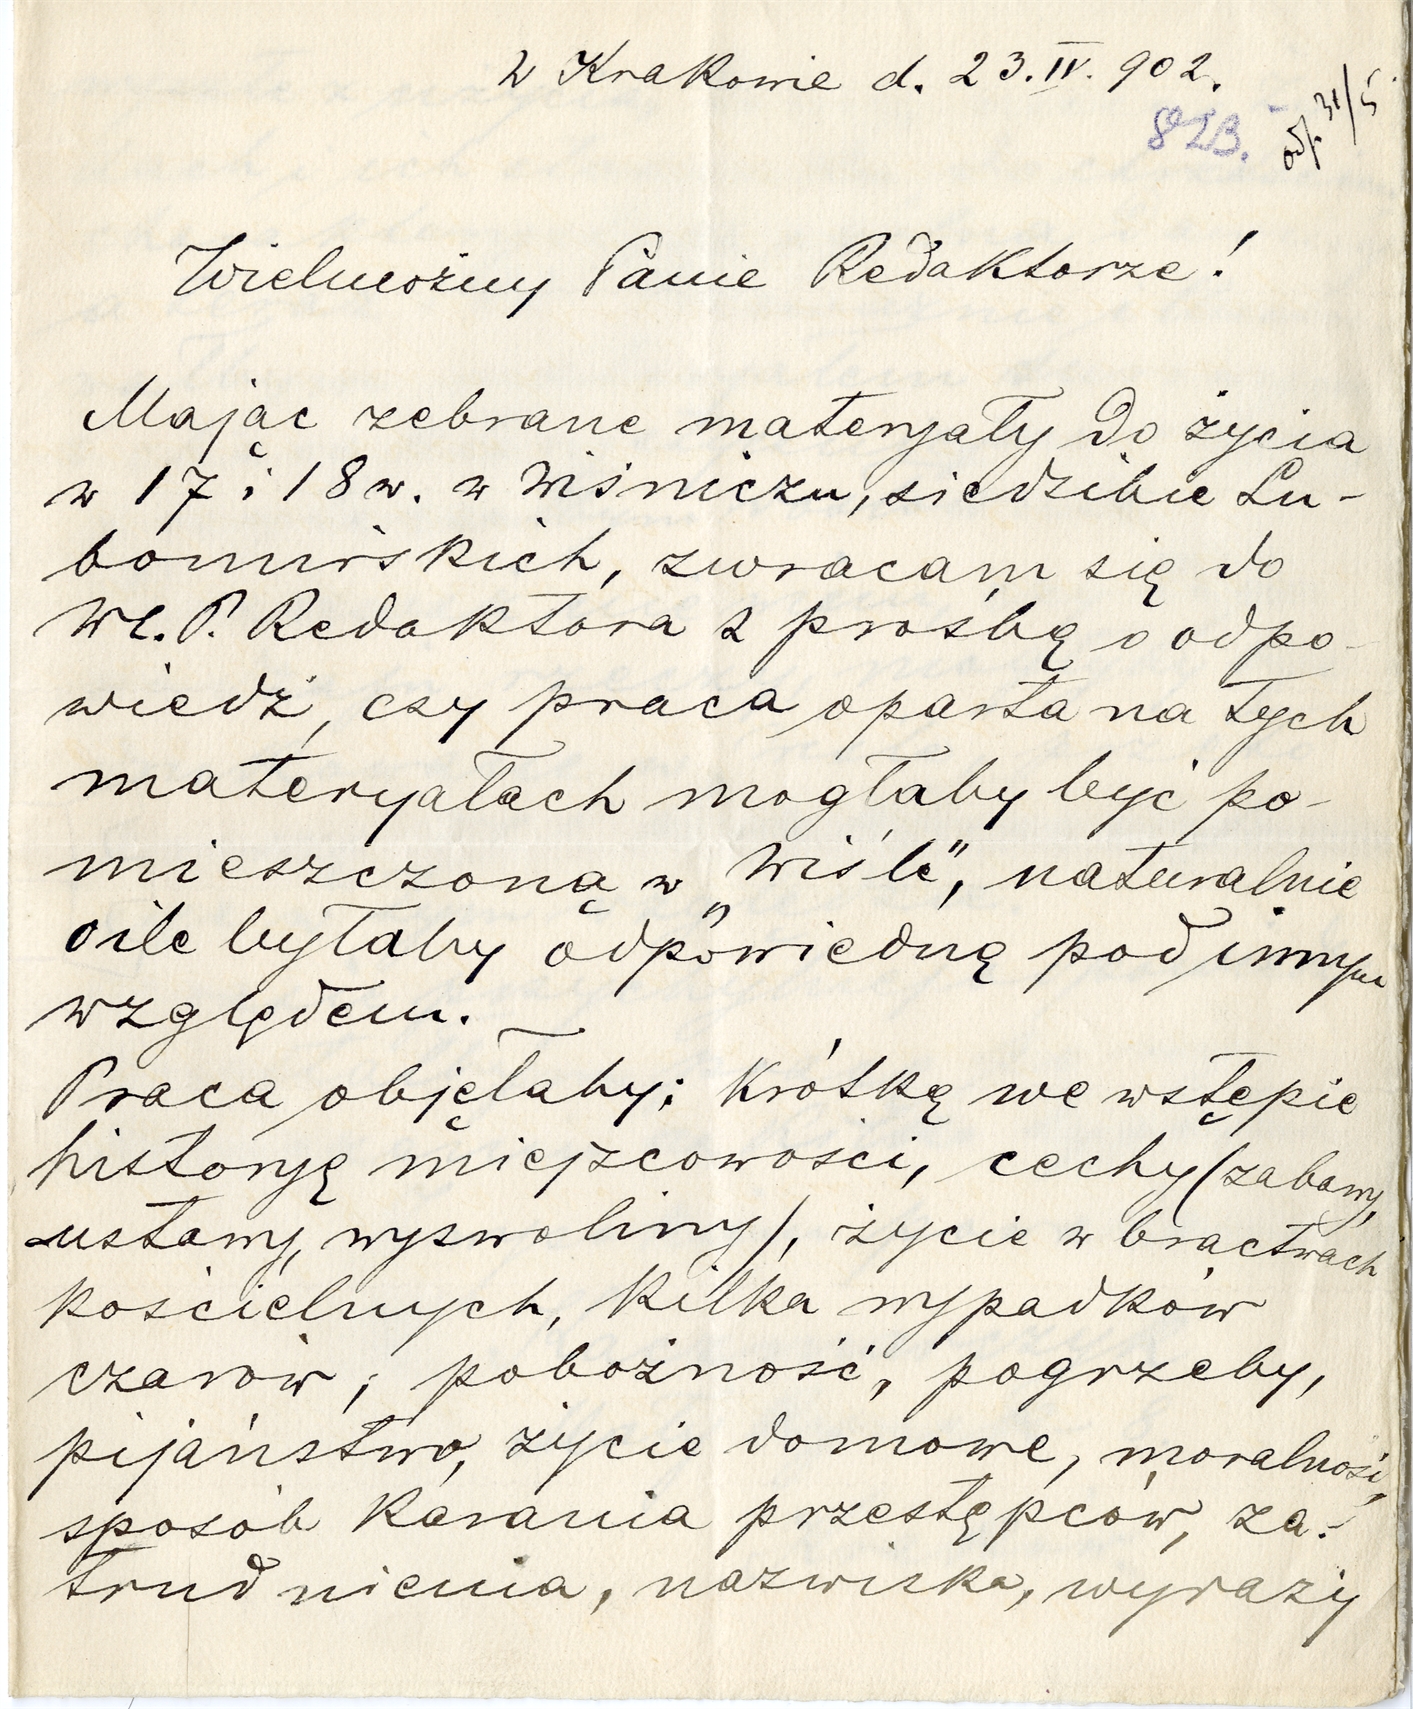 W Krakowie d. 23.IV. 902.
823.
odp. 31/5
Wielmożny Panie Redaktorze!
Mając zebrane materyały do życia
w 17 i 18 w. w Wiśniczu, siedzibie Lu-
bomirskich, zwracam się do
Wl. P. Redaktora z prośbą o odpo-
wiedź, czy praca oparta na tych
materyałach mogłaby być po-
mieszczoną w „Wiśle", naturalnie
o ile byłaby odpowiedną pod innym
względem.
Praca objęłaby: Krótką we wstępie
historyę miejscowości, cechy (zabawy,
ustawy, wyzwoliny), życie w bractwach
kościelnych, kilka wypadków
czarów, pobożność, pogrzeby,
pijaństwo, życie domowe, moralność,
sposób karania przestępców, za-
trudnienia, nazwiska, wyrazy